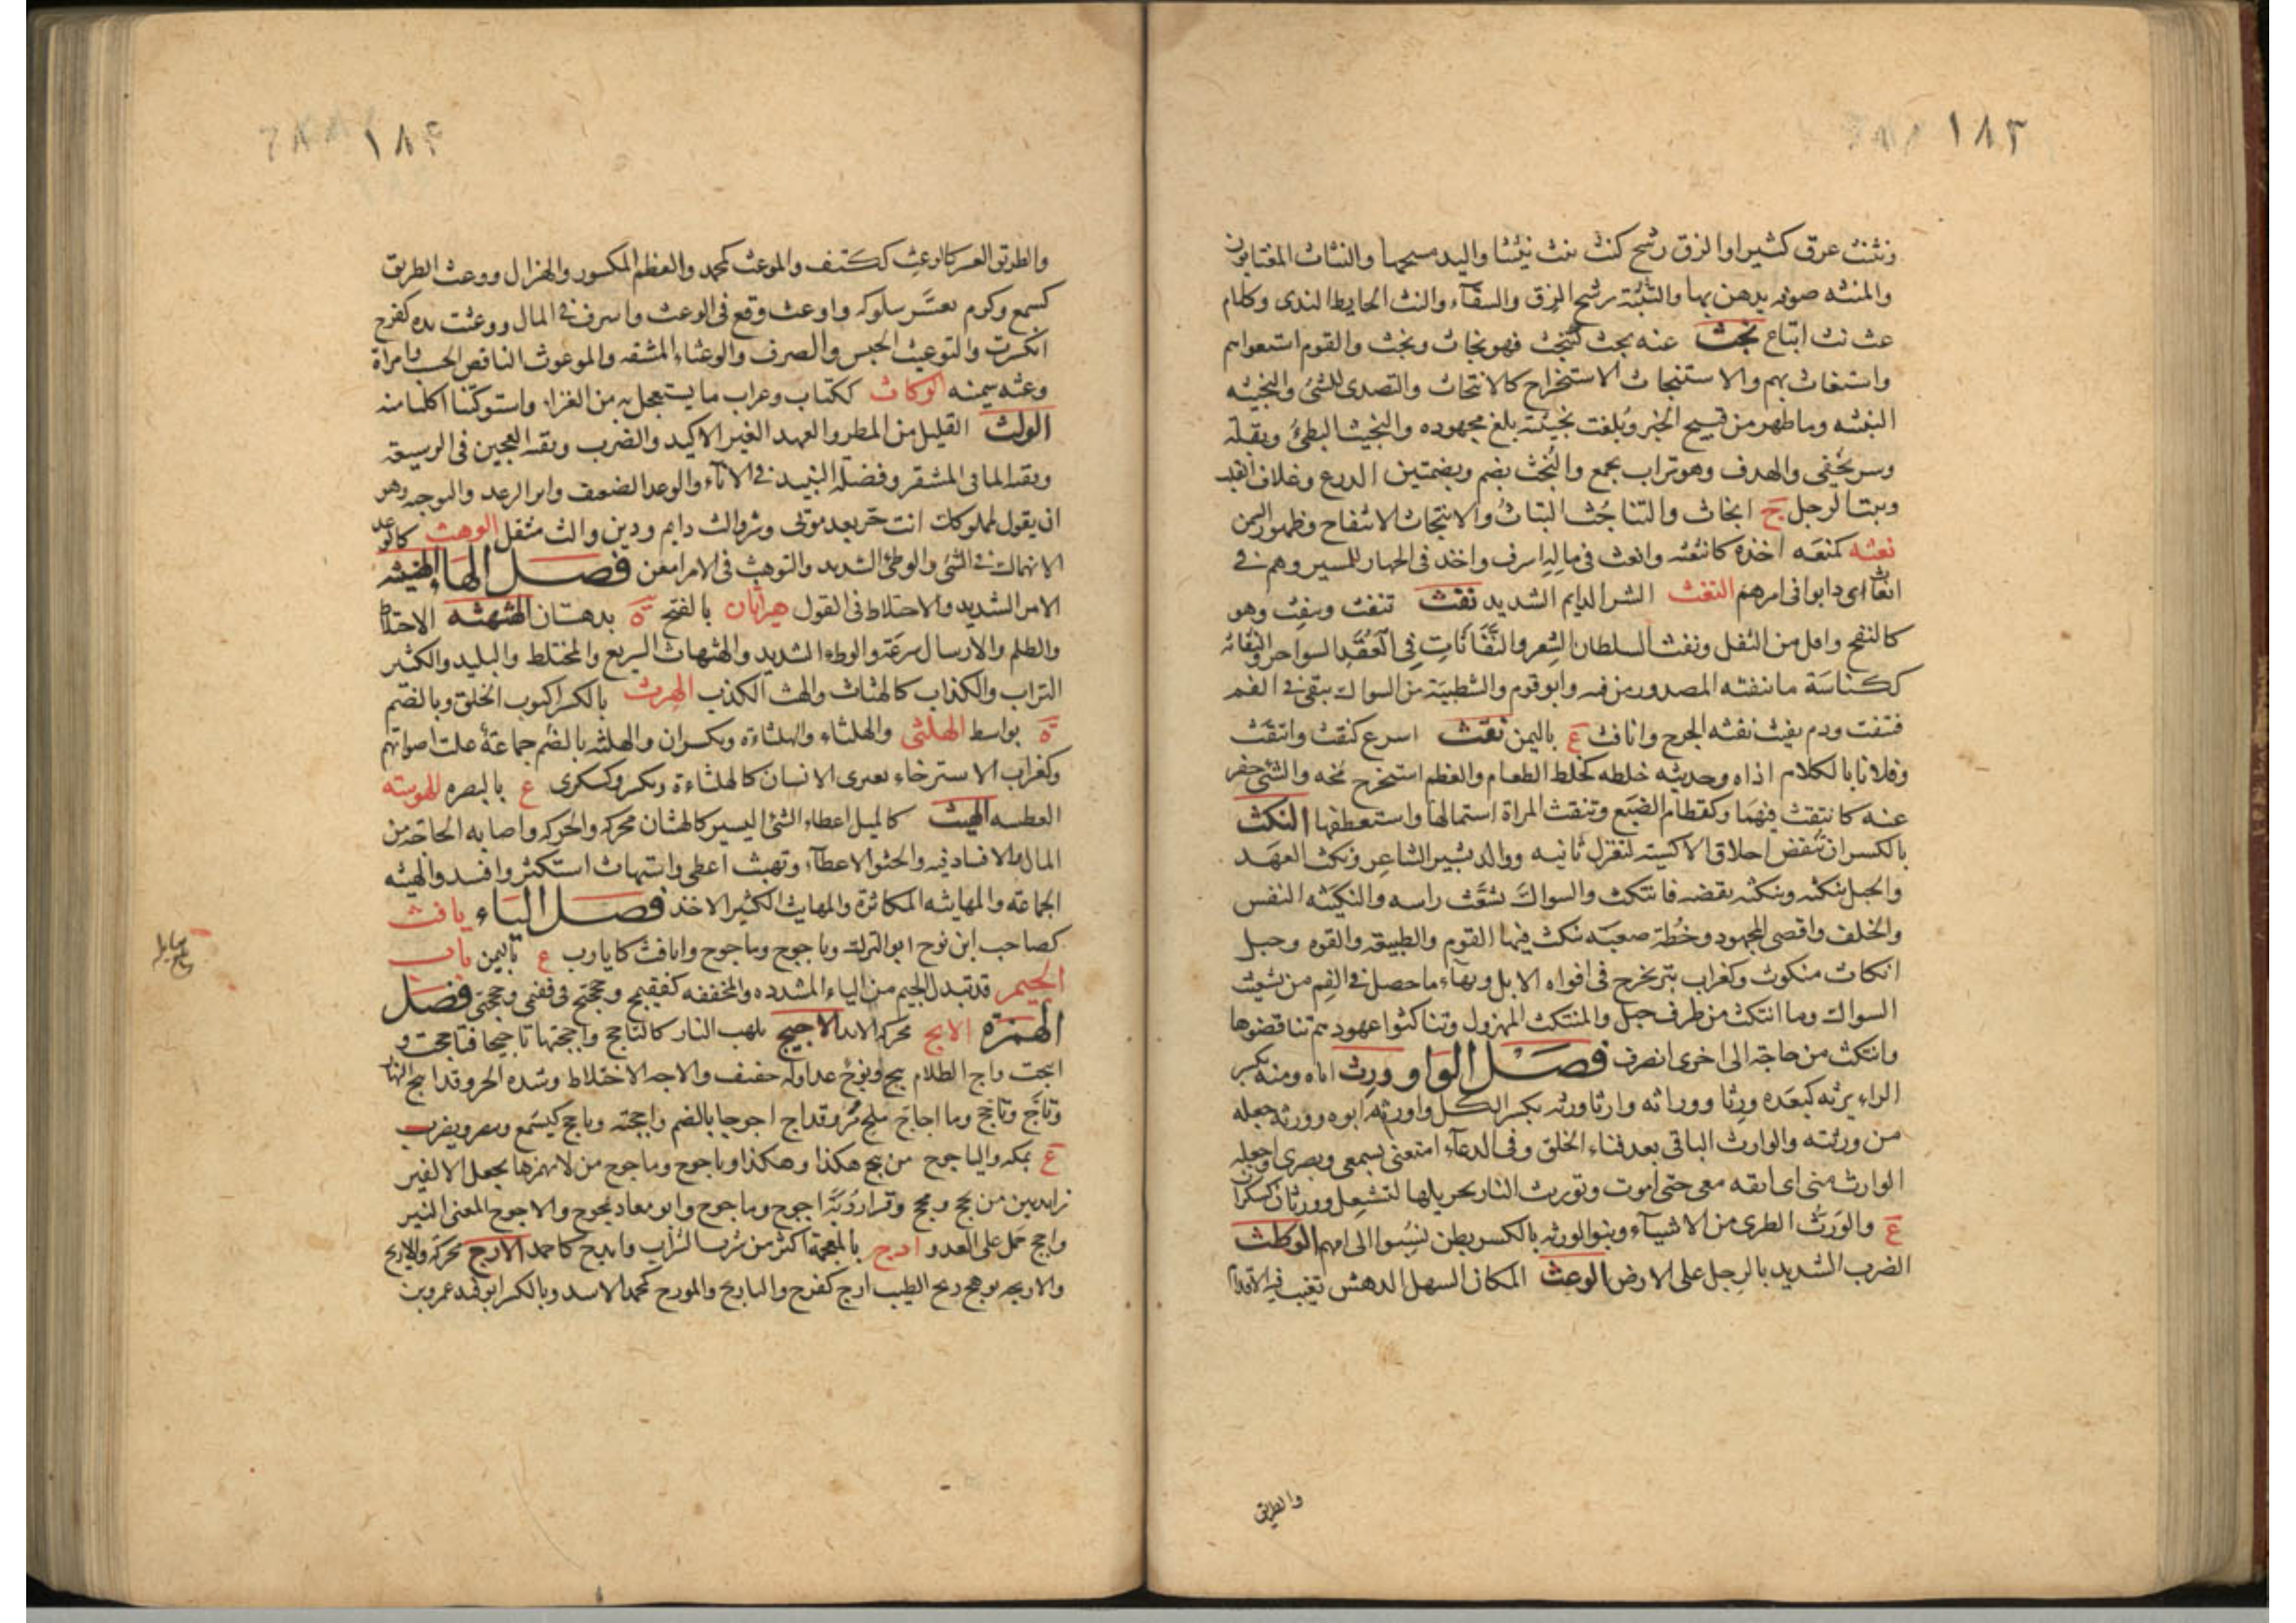 ١٨٣
ونثنث عرق كثيرا والزق رشح كنث ينث نثيثا واليد مسحها والنثاث المغتابون
والمنثه صوفه يدهن بها والنثيثة رشح الزق والسقآء والنث الحايط الندى وكلام
غث نث اتباع نجث عنه بحث كتنجث فهو نجاث ونجث والقوم استعواهم
واستغاث بهم والاستنجاث الاستخراج كالانتجاث والتصدى للشئ والنجيثه
النبيثه وما ظهر من قبيح الخبر وبلغت نجيثته بلغ مجهوده والنجيث البطئ وبقله
وسر يخفى والهدف وهو تراب يجمع والنجث بضم وبضمتين الدرع وغلاف القلب
وبيت الرجل ج انجاث والتناجث التباث والانتجاث الانتفاخ وظهور السمن
نعثه كمنعه اخذه كانتعثه وانعث فى ماله اسرف واخذ فى الجهاز للمسير وهم فى
انعاث اى دابوا فى امرهم النغث الشر الدايم الشديد نفث ينفث وينفث وهو
كالنفخ واقل من التفل ونفث الشيطان الشعر والنَّفَّاثَاتِ فِى الْعُقَدِ السواحر والنفاثه
ككناسة ما ينفثه المصدور من فيه وابو قوم والشطيبة من السواك تبقى فى الفم
فتنفث ودم نفيث نفثه الجرح وانافث ع باليمن نقث اسرع كنقث وانتقث
وفلانا بالكلام اذاه وحديثه خلطه كخلط الطعام والعظم استخرج مخه والشئ حفر
عنه كانتقث فيهما وكقطام الضبع وتنقث المراة استمالها واستعطفها النكث
بالكسر ان تنقض اخلاق الاكسية لتغزل ثانيه ووالد بشير الشاعر ونكث العهد
والحبل ينكثه وينكثه نقضه فانتكث والسواك تشعث راسه والنكيثه النفس
والخلف واقصى المجهود وخطة صعبة ينكث فيها القوم والطبيعة والقوه وحبل
انكاث منكوث وكغراب بثر يخرج فى افواه الابل وبهآء ما حصل فى الفم من تشعيث
السواك وما انتكث من طرف حبل والمنتكث المهزول وتناكثوا عهودهم تناقضوها
وانتكث من حاجة الى اخرى انصرف فصل الواو ورث اباه ومنه بكسر
الراء يرثه كيعده ورثا ووراثه وارثا ورثه بكسر الكل واورثه ابوه وورثه جعله
من ورثته والوارث الباقى بعد فناء الخلق وفى الدعآء امتعنى بسمعى وبصرى واجعله
الوارث منى اى ابقه معى حتى اموت وتوريث النار تحريكها لتشتعل وورثان كسكران
ع والورث الطرى من الاشيآء وبنو الورثه بالكسر بطن نسبوا الى امهم الوطث
الضرب الشديد بالرجل على الارض الوعث المكان السهل الدهش تغيب فيه الاقدام
والطريق
١٨٤
والطريق العسر كالوعث ككتف والموعث كمحمد والعظم المكسور والهزال ووعث الطريق
كسمع وكرم تعسر سلوكه واوعث وقع فى الوعث واسرف فى المال ووعثت يده كفرح
انكسرت والتوعيث الحبس والصرف والوعثاء المشقه والموعوث الناقص الحسب وامراة
وعثه سمينه الوكاث ككتاب وغراب ما يستعجل به من الغداء واستوكثنا اكلنا منه
الولث القليل من المطر والعهد الغير الاكيد والضرب وبقية العجين فى الدسيعة
وبقية الما فى المشقر وفضلة النبيذ فى الانآء والوعد الضعيف واثر الرمد والتوجيه وهو
ان يقول لمملوكك انت حر بعد موتى وشر والث دايم ودين والث مثقل الوهث كالوعد
الانهماك فى الشئ والوطئ الشديد والتوهث فى الامر امعن فصل الهاء الهنبثه
الامر الشديد والاختلاط فى القول هراثان بالفتح ة بدهستان الهثهثه الاختلاط
والظلم والارسال بسرعة والوطء الشديد والهثهاث السريع والمختلط والبليد والكثير
التراب والكذاب كالهثاث والهث الكذب الهرث بالكسر الثوب الخلق وبالضم
ة بواسط الهلثى والهلثاء والهلثاءة ويكسران والهلثه بالضم جماعة علت اصواتهم
وكغراب الاسترخاء يعترى الانسان كالهلثاءة ويكسر وكسكرى ع بالبصره الهوثه
العطشه الهيث كالميل اعطاء الشئ اليسير كالهيثان محركة والحركه واصابه الحاجة من
المال والافساد فيه والحثو للاعطآء وتهيث اعطى واستهاث استكثر وافسد والهيثه
الجماعة والمهايثه المكاثرة والمهايث الكثير الاخذ فصل الياء يافث
كصاحب ابن نوح ابو الترك وياجوج وماجوج وايافث كايارب ع باليمن باب
الجيم قد تبدل الجيم من الياء المشدده والمخففه كفقيمج وحجتج فى فقمى وحجتى فصل
الهمزة الابج محركه الابد الاجيج تلهب النار كالتاجج واججتها تاجيجا فتاججت و
ايتجت واج الظلام يئج ويؤج عدا وله حفيف والاجه الاختلاط وشده الحر وقد ايتج النهار
وتاج وتاجج وما اجاج ملح مر وقد اج اجوجا بالضم واججته وياجج كيسمع وينصر ويضرب
ع بمكه والياجوج من يئج هكذا وهكذا وياجوج وماجوج من لا يهمزها يجعل الالفين
زايدتين من يجج ومجج وقرا رؤبة اجوج وماجوج وابو معاذ يمجوج والاجوج المضئ النير
واجج حمل على العدو اذج بالمعجمة اكثر من شرب الشراب وايذج كاحمد الارج محركة والاريج
والاريجه توهج ريح الطيب ارج كفرح والتاريج والمورج كمحمد الاسد وبالكسر ابو فيد عمرو بن